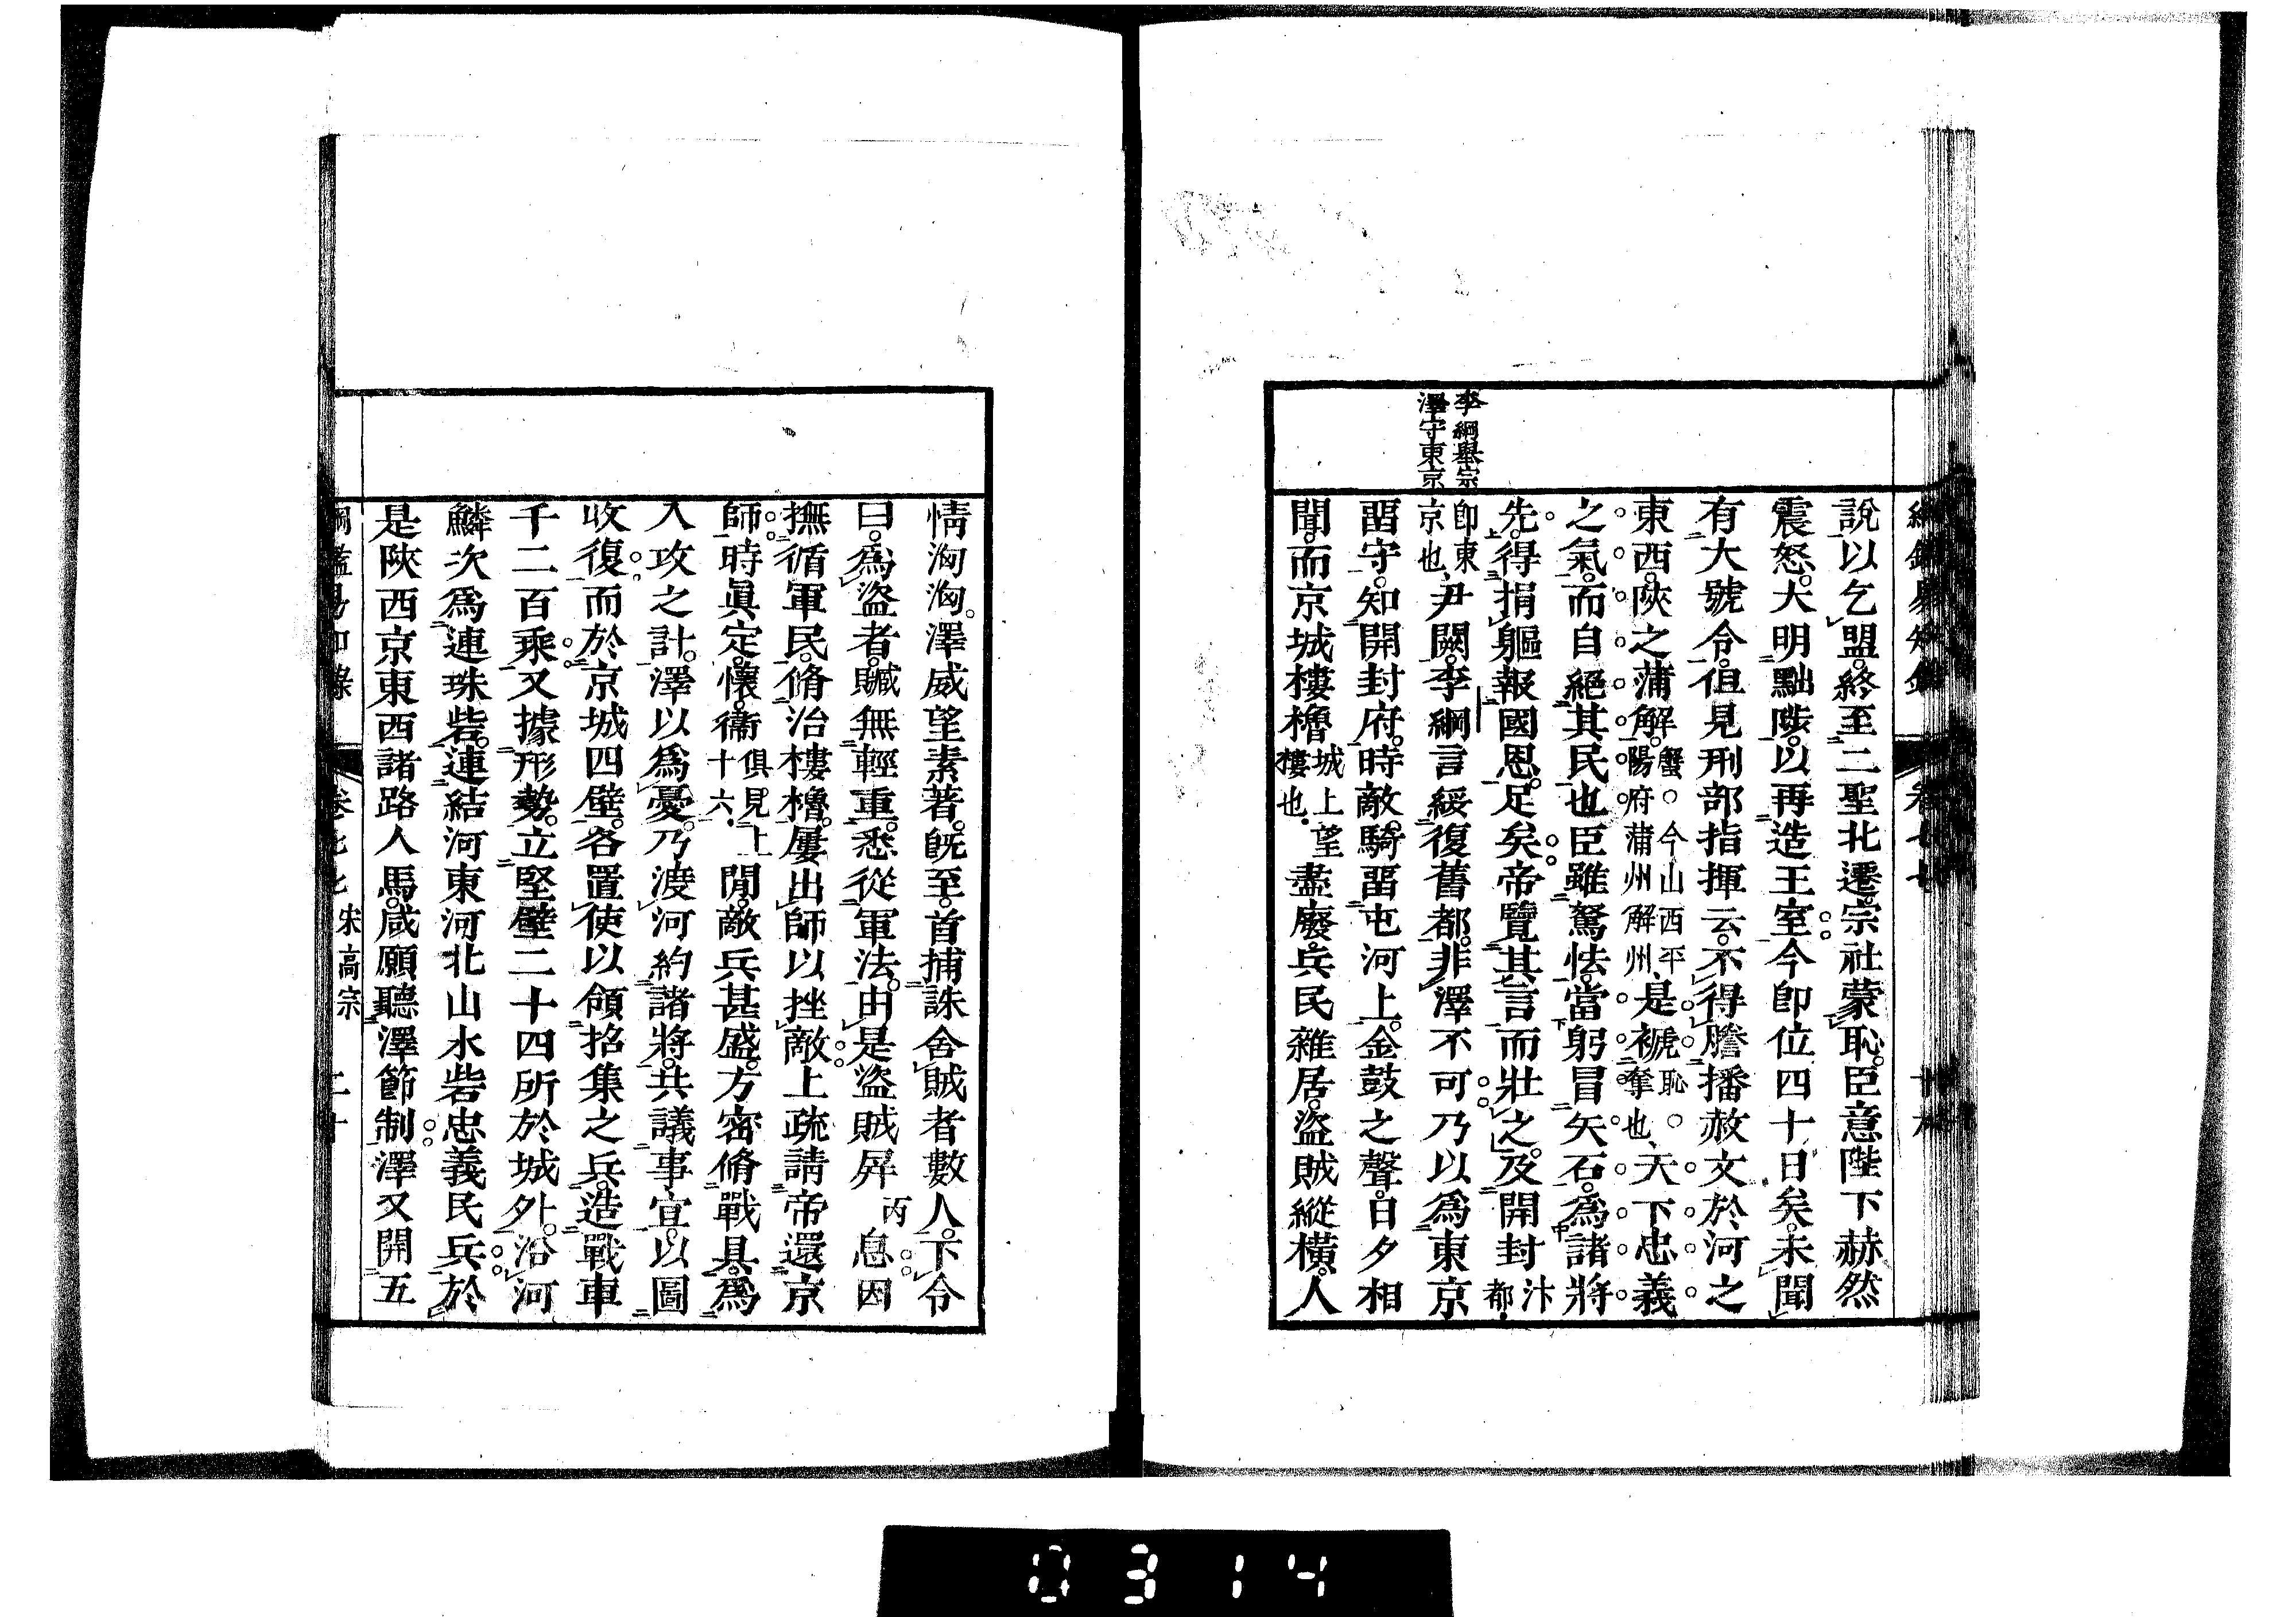 綱鑑易知錄 卷七七 廿九
說以乞盟。終至二聖北遷。宗社蒙恥。臣意陛下赫然
震怒。大明黜陟。以再造王室。今卽位四十日矣。未聞
有大號令。但見刑部指揮云。不得謄播赦文於河之
東西。陝之蒲解。解蟹○今山西平陽府蒲州解州、是褫褫恥○奪也、天下忠義
之氣。而自絕其民也。臣雖駑怯。當躬冒矢石。爲諸將
先。得捐軀報國恩。足矣。帝覽其言而壯之。及開封汴都・
李綱舉宗澤守東京
卽東京也、尹闕。李綱言綏復舊都。非澤不可。乃以爲東京
畱守。知開封府。時敵騎畱屯河上。金鼓之聲。日夕相
聞。而京城樓櫓城上望樓也・盡廢。兵民雜居。盜賊縱橫。人
情洶洶。澤威望素著。旣至。首捕誅舍賊者數人。下令
曰。爲盜者。贓無輕重。悉從軍法。由是盜賊屛丙息。因
撫循軍民。脩治樓櫓。屢出師以挫敵。上疏請帝還京
師。時眞定。懷。衞俱見上十六・閒。敵兵甚盛。方密脩戰具。爲
入攻之計。澤以爲憂。乃渡河約諸將。共議事宜。以圖
收復。而於京城四壁。各置使以領招集之兵。造戰車
千二百乘。又據形勢。立堅壁二十四所於城外。沿河
鱗次爲連珠砦。連結河東河北山水砦忠義民兵。於
是陝西京東西諸路人馬。咸願聽澤節制。澤又開五
綱鑑易知錄 卷七七 宋高宗 二十
0314